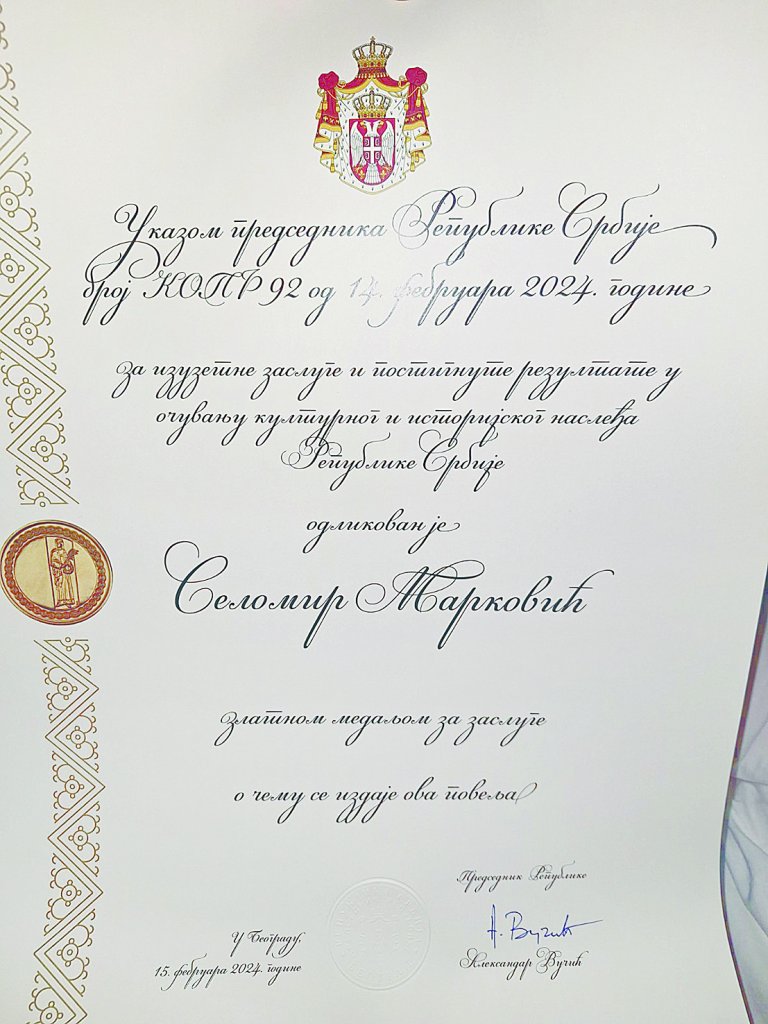 Указом председника Републике Србије
број КОПР 92 од 14. фебруара 2024. године
за изузетне заслуге и постигнуте резултате у
очувању културног и историјског наслеђа
Републике Србије
одликован је
Селомир Марковић
златном медаљом за заслуге
о чему се издаје ова повеља
Председник Републике
А. Вучић
Александар Вучић
У Београду,
15. фебруара 2024. године